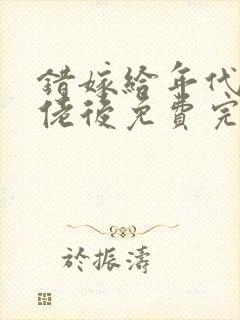 錯嫁給年代
佬後免費完
於振濤